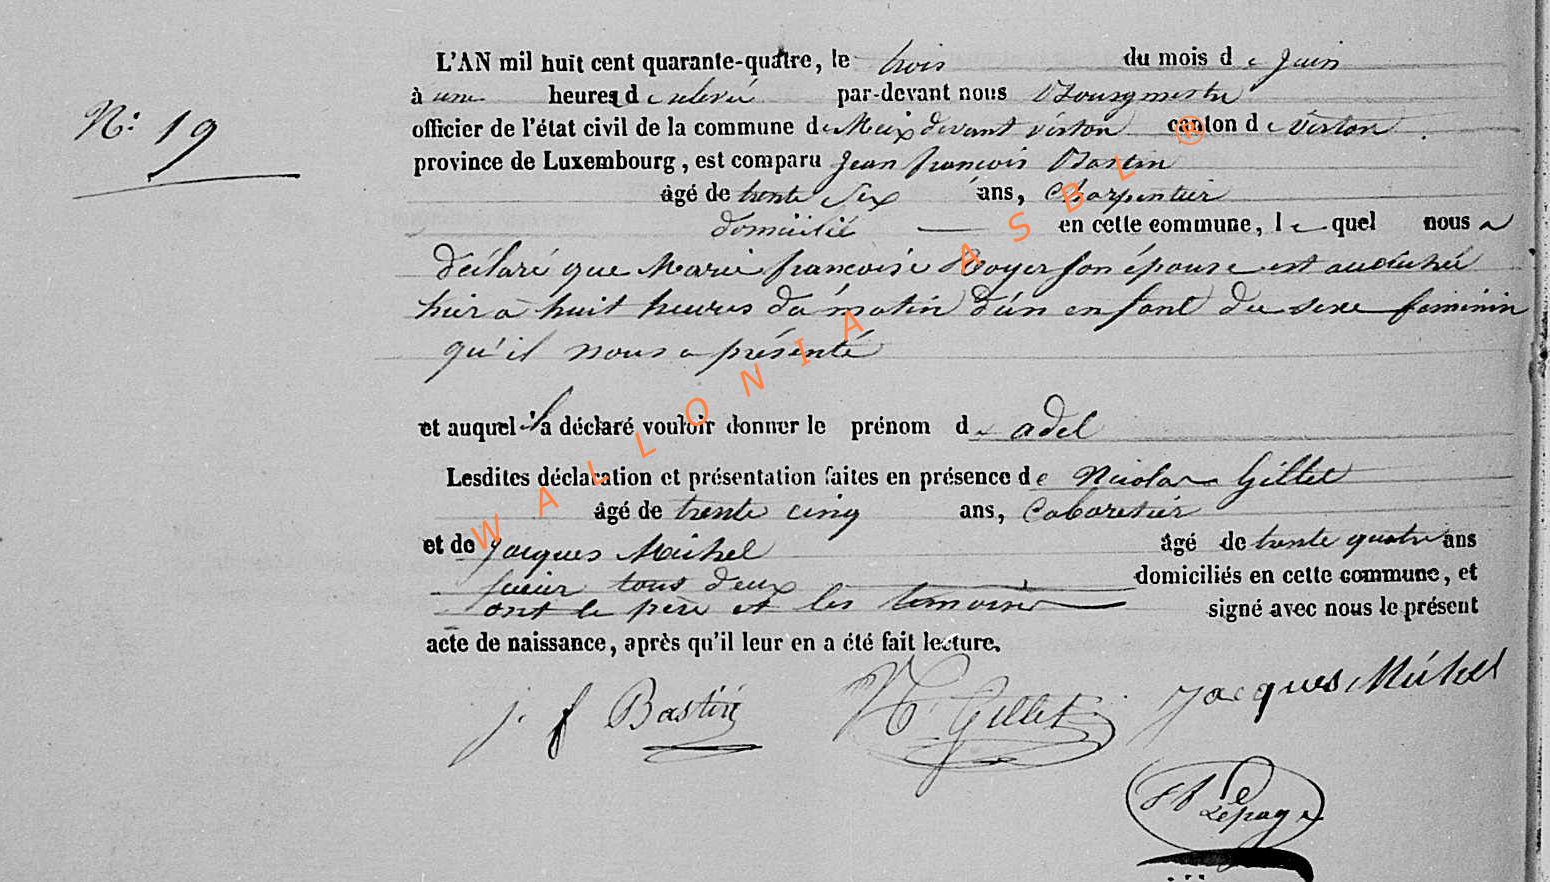 L'AN mil huit cent quarante-quatre, le trois du mois de Juin
N° 19
à une heures de relevé par-devant nous Bourgmestre
officier de l'état civil de la commune de Meix devant virton canton de Virton
province de Luxembourg, est comparu Jean françois Bastin
âgé de trente Six ans, Charpentier
domicilié en cette commune, lequel nous a
déclaré que Marie françoise Royer son épouse est accouchée
hier a huit heures du matin d'un enfant du sexe feminin
qu'il nous a présenté
et auquel il a déclaré vouloir donner le prénom de adel
Lesdites déclaration et présentation faites en présence de Nicolas Gillet
âgé de trente cinq ans, Cabaretier
et de Jacques Michel âgé de trente quatre ans
tous deux domiciliés en cette commune, et
ont le père et les temoins signé avec nous le présent
acte de naissance, après qu'il leur en a été fait lecture.
j. f Bastin N. Gillet Jacques Michel
Lepage
WALLONIA ASBL ®